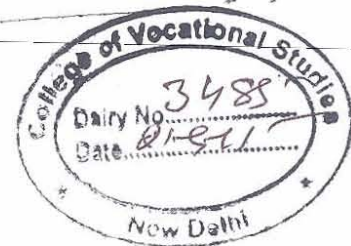 College of Vocational Studies
Dairy No. 3485
Date
New Delhi